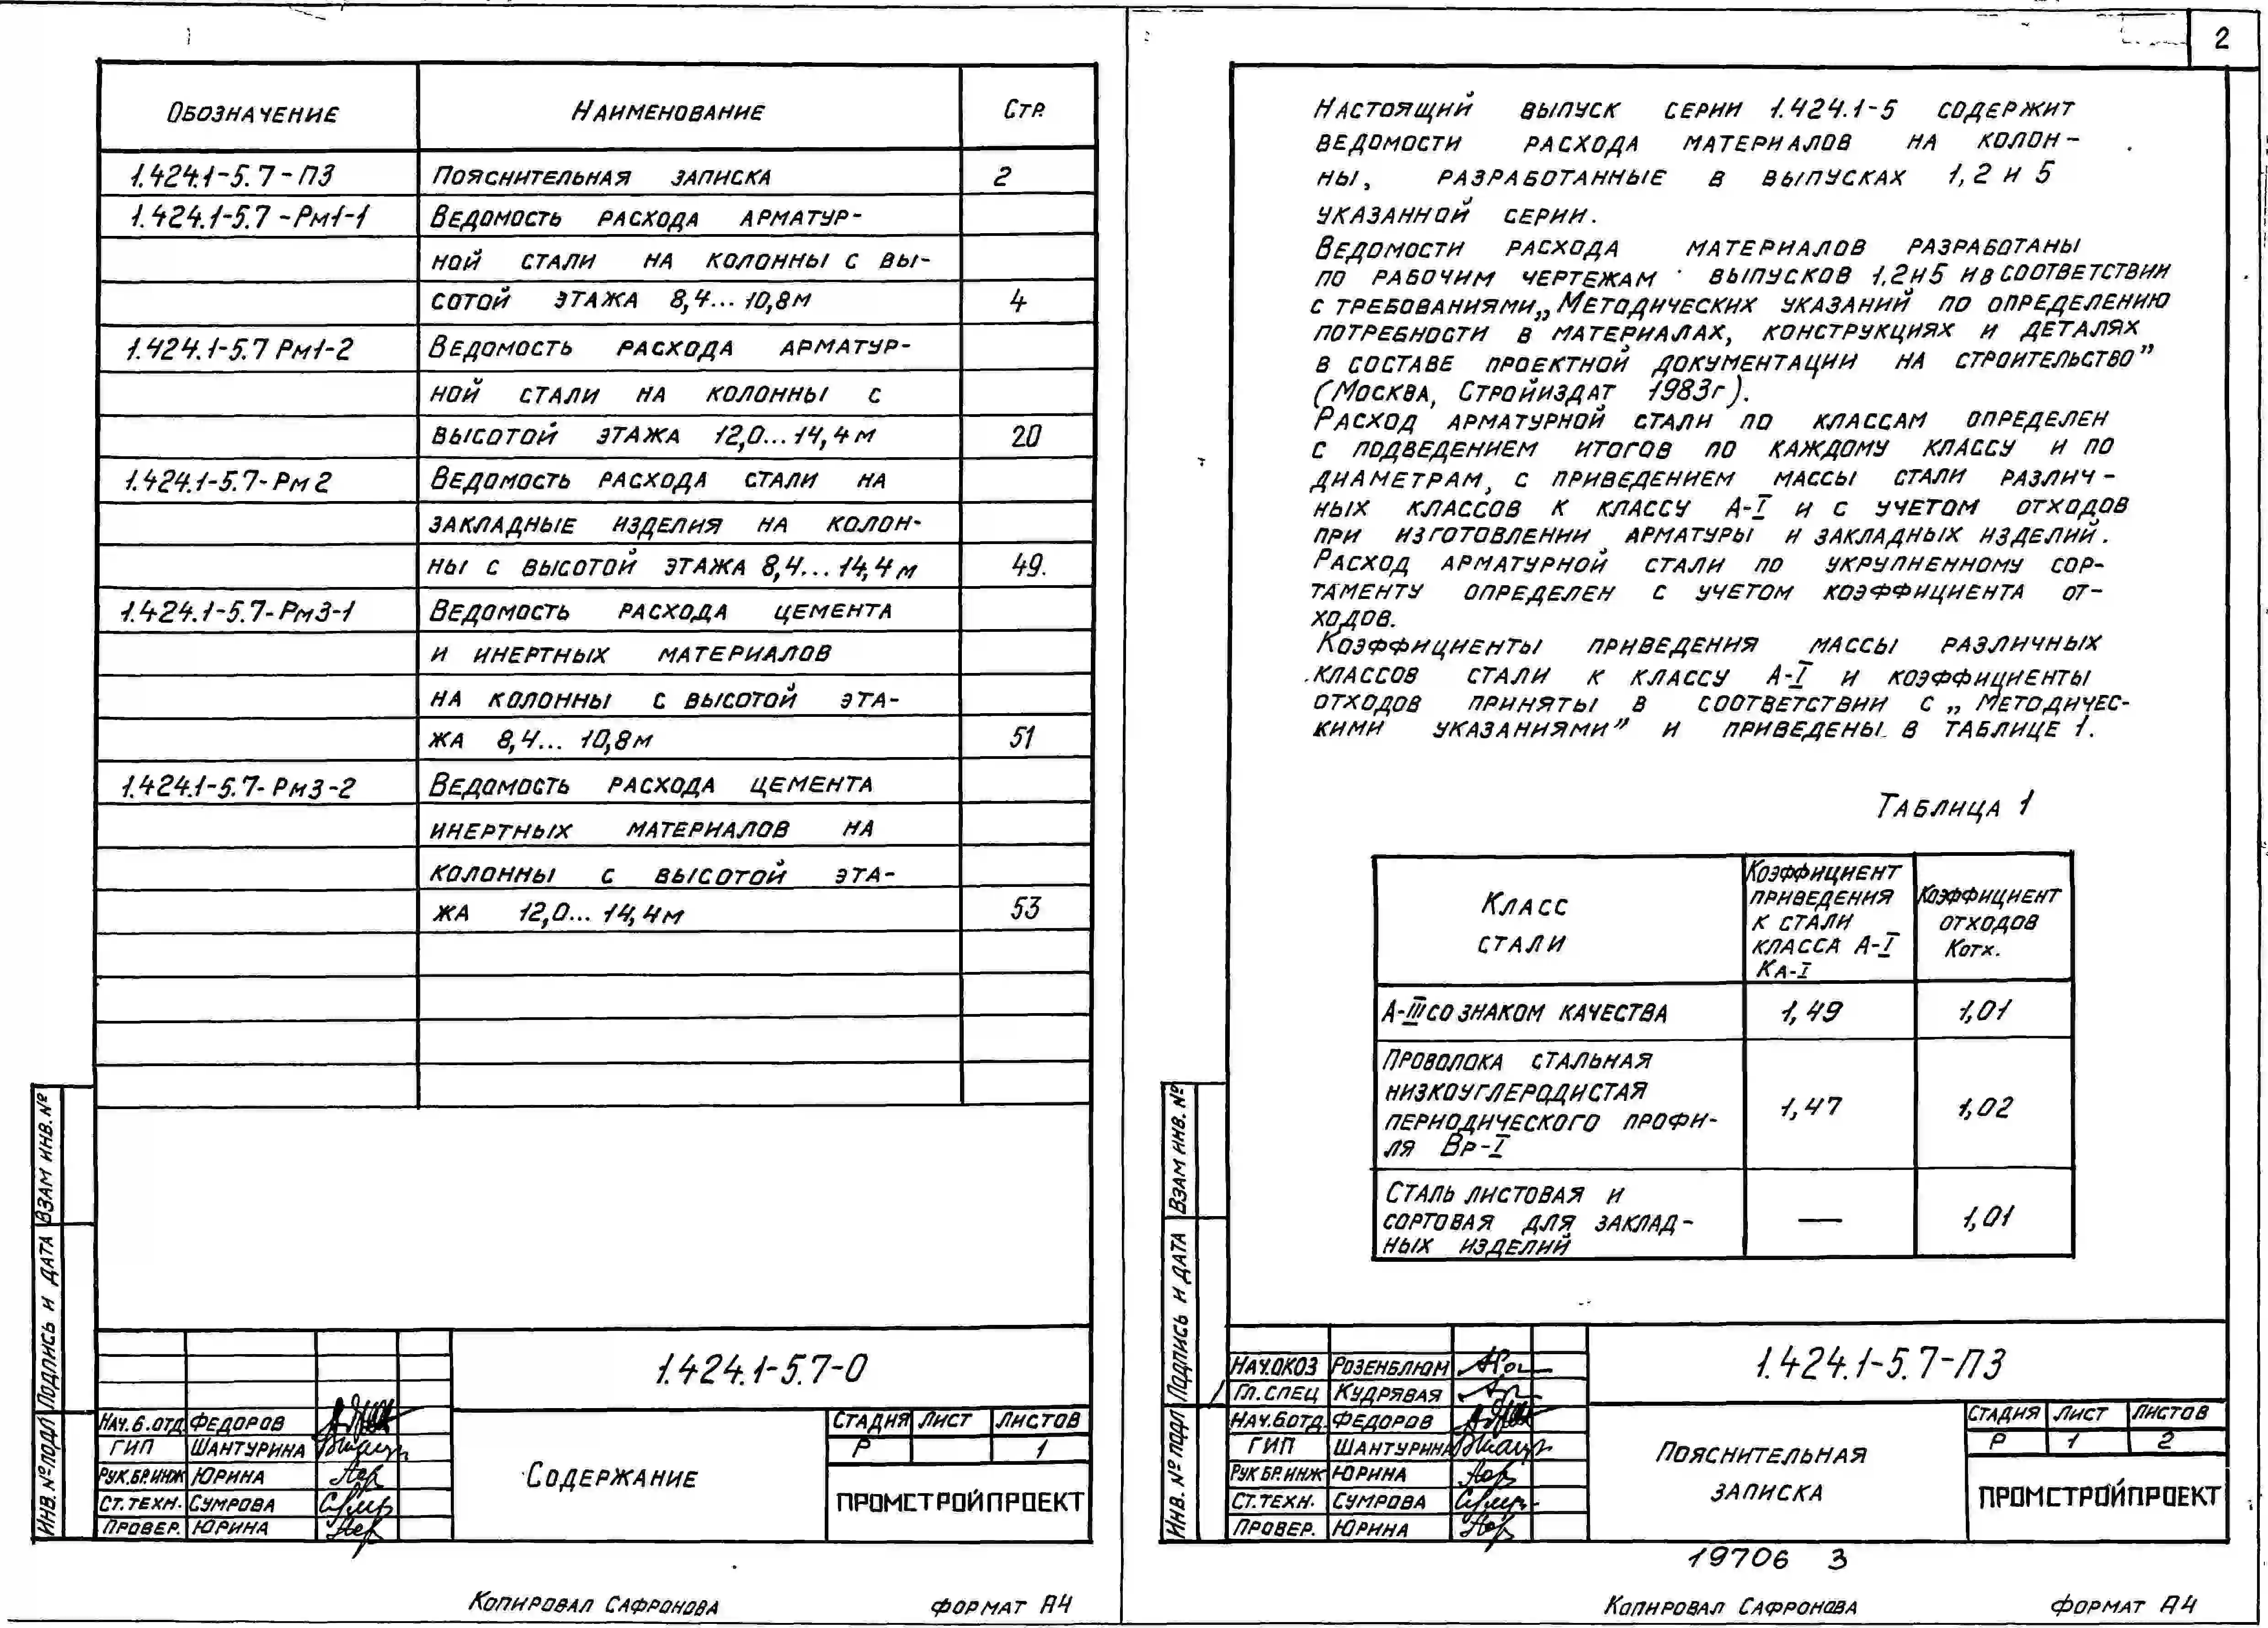 Обозначение Наименование Стр.
1.424.1-5.7-ПЗ Пояснительная записка 2
1.424.1-5.7-Рм1-1 Ведомость расхода арматур-
ной стали на колонны с вы-
сотой этажа 8,4...10,8м 4
1.424.1-5.7 Рм1-2 Ведомость расхода арматур-
ной стали на колонны с
высотой этажа 12,0...14,4м 20
1.424.1-5.7-Рм2 Ведомость расхода стали на
закладные изделия на колон-
ны с высотой этажа 8,4...14,4м 49.
1.424.1-5.7-Рм3-1 Ведомость расхода цемента
и инертных материалов
на колонны с высотой эта-
жа 8,4...10,8м 51
1.424.1-5.7-Рм3-2 Ведомость расхода цемента
инертных материалов на
колонны с высотой эта-
жа 12,0...14,4м 53
Взам инв. №
Подпись и дата
Инв. № подл
1.424.1-5.7-0
Нач.6.отд. Федоров
ГИП Шантурина
Рук.бр.инж Юрина
Ст.техн. Сумрова
Провер. Юрина
Содержание
Стадия Лист Листов
Р 1
ПРОМСТРОЙПРОЕКТ
Копировал Сафронова формат А4
2
Настоящий выпуск серии 1.424.1-5 содержит
ведомости расхода материалов на колон-
ны, разработанные в выпусках 1,2 и 5
указанной серии.
Ведомости расхода материалов разработаны
по рабочим чертежам выпусков 1,2и5 и в соответствии
с требованиями „Методических указаний по определению
потребности в материалах, конструкциях и деталях
в составе проектной документации на строительство”
(Москва, Стройиздат 1983г).
Расход арматурной стали по классам определен
с подведением итогов по каждому классу и по
диаметрам, с приведением массы стали различ-
ных классов к классу А-I и с учетом отходов
при изготовлении арматуры и закладных изделий.
Расход арматурной стали по укрупненному сор-
таменту определен с учетом коэффициента от-
ходов.
Коэффициенты приведения массы различных
классов стали к классу А-I и коэффициенты
отходов приняты в соответствии с „Методичес-
кими указаниями” и приведены в таблице 1.
Таблица 1
Класс
стали
Коэффициент
приведения
к стали
класса А-I
КА-I
Коэффициент
отходов
Котх.
А-III со знаком качества 1,49 1,01
Проволока стальная
низкоуглеродистая
периодического профи-
ля Вр-I 1,47 1,02
Сталь листовая и
сортовая для заклад-
ных изделий — 1,01
Взам инв. №
Подпись и дата
Инв. № подл
1.424.1-5.7-ПЗ
Нач.ОКОЗ Розенблюм
Гл.спец Кудрявая
Нач.6отд. Федоров
ГИП Шантурина
Рук бр.инж Юрина
Ст.техн. Сумрова
Провер. Юрина
Пояснительная
записка
Стадия Лист Листов
Р 1 2
ПРОМСТРОЙПРОЕКТ
19706 3
Копировал Сафронова формат А4